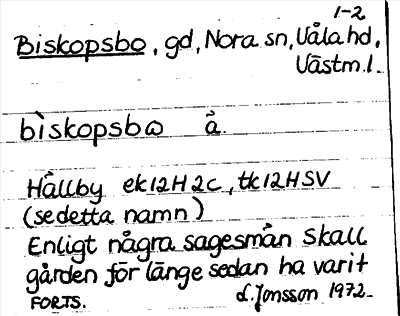 1-2
Biskopsbo, gd, Nora sn, Våla hd,
Västm.l.
bìskopsbω å.
Hållby ek12H2c, tk12HSV
(se detta namn)
Enligt några sagesmän skall
gården för länge sedan ha varit
FORTS. L. Jonsson 1972